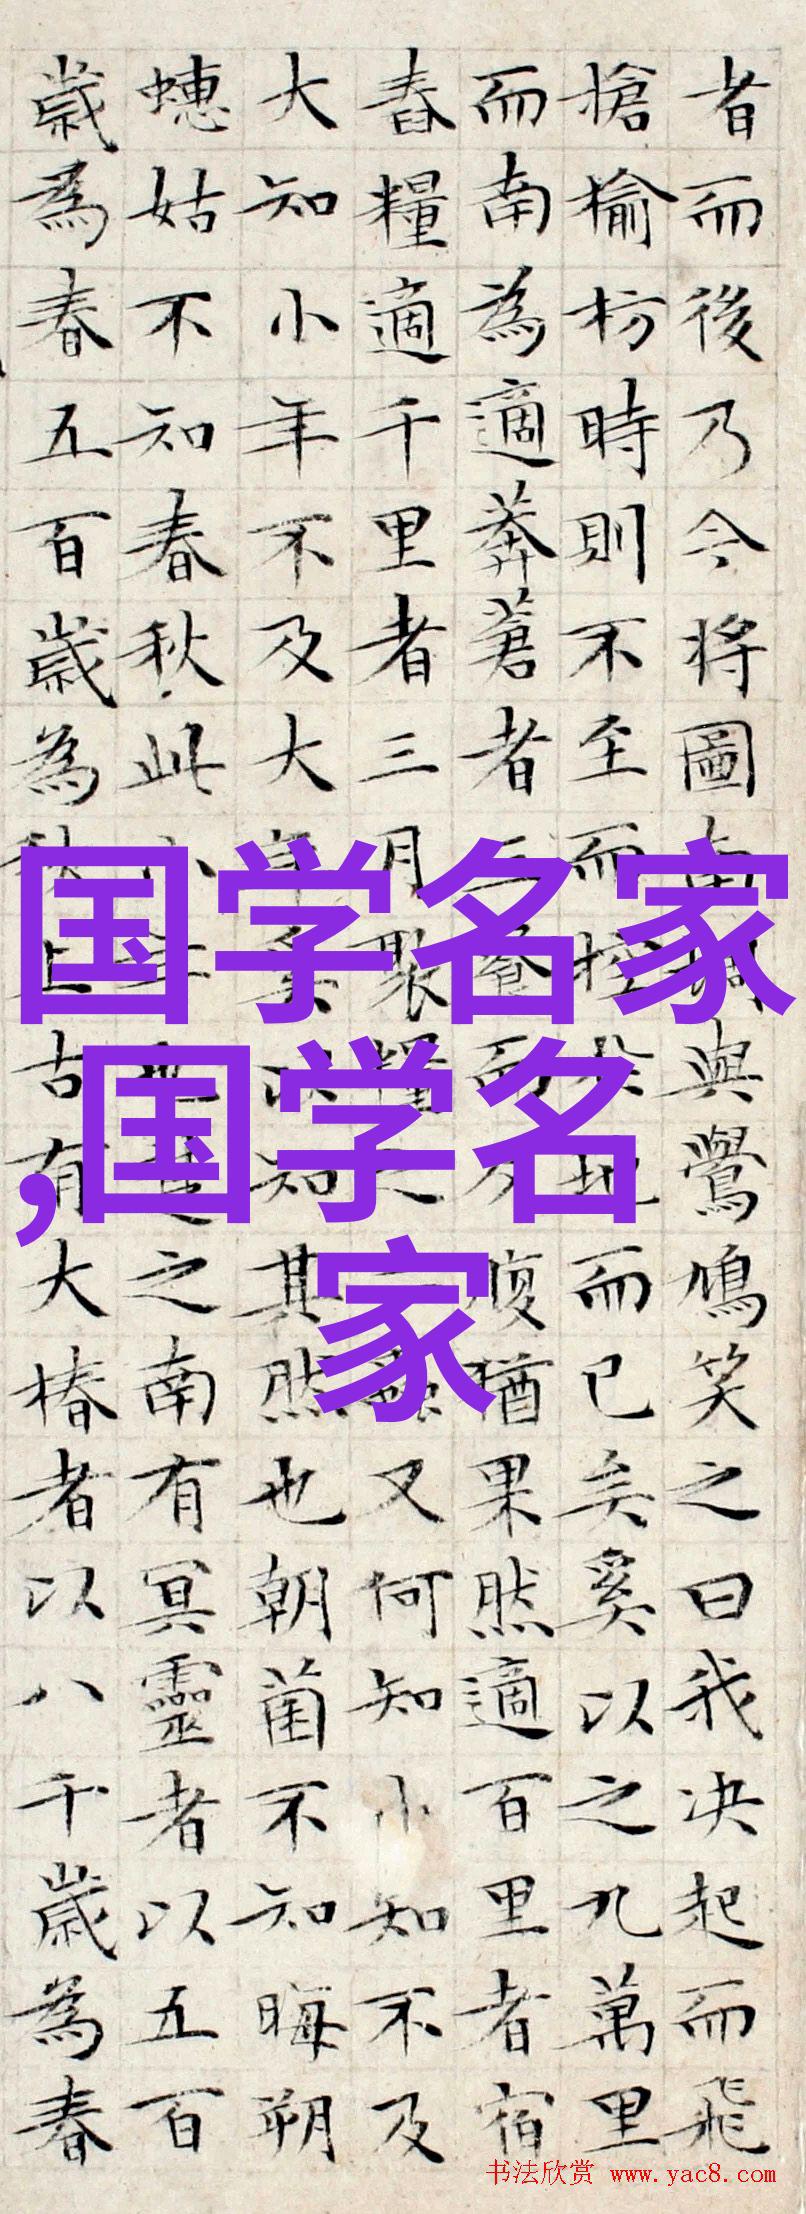 者而後乃今將圖南蜩與鷽鳩笑之曰我决起而飛
搶榆枋時則不至而控於地而已矣奚以之九萬里
而南為適莽蒼者三飡而反腹猶果然適百里者宿
舂糧適千里者三月聚糧之二蟲又何知小知不及
大知小年不及大年奚以知其然也朝菌不知晦朔
蟪姑不知春秋此小年也楚之南有冥靈者以五百
歲為春五百歲為秋上古有大椿者以八千歲為春
国学名家
,国学名
家
书法欣赏 www.yac8.com